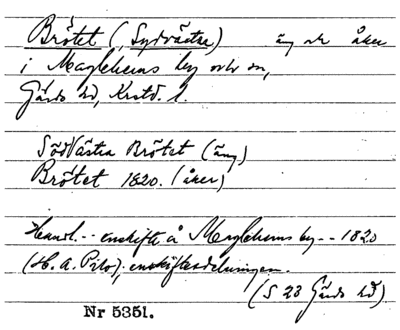 Brötet (, Sydvästra) äng och åker
i Maglehems by och sn,
Gärds hd, Krstd. l.
SödVästra Brötet (äng)
Brötet 1820. (åker)
Handl. -- enskifte å Maglehems by -- 1820
(H. A. Pilo); enskiftesdelningen.
(S 23 Gärds hd)
Nr 5351.